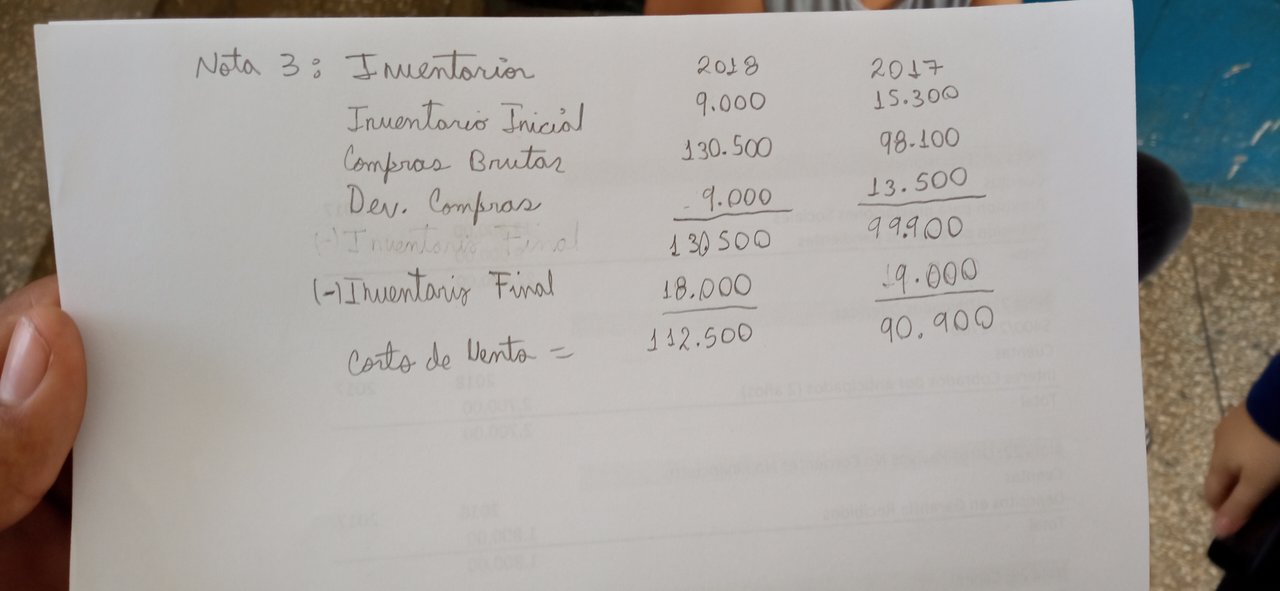 Nota 3: Inventarios 2018 2017
Inventario Inicial 9.000 15.300
Compras Brutas 130.500 98.100
Dev. Compras 9.000 13.500
(-) Inventario Final 130500 99.900
(-) Inventario Final 18.000 19.000
Costo de Venta = 112.500 90.900